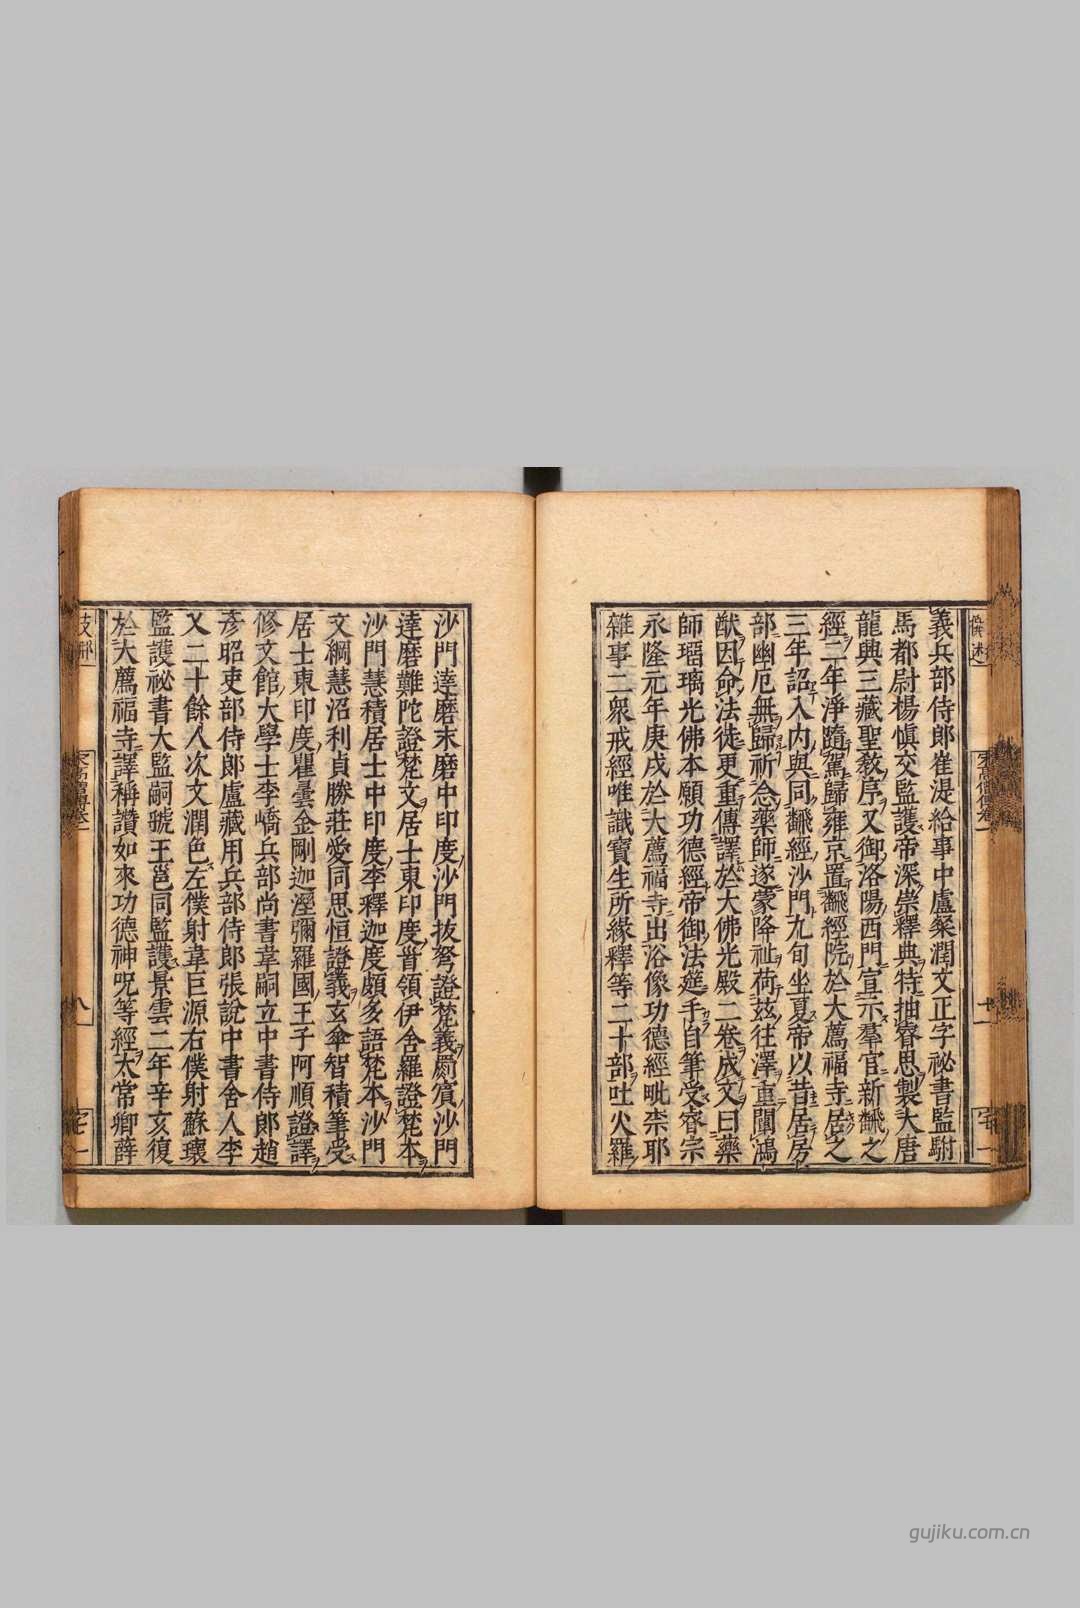 義兵部侍郎崔湜給事中盧粲潤文正字祕書監駙
馬都尉楊愼交監護帝深崇釋典特抽睿思製大唐
龍興三藏聖敎序又御洛陽西門宣示羣官新飜之
經二年淨隨駕歸雍京置飜經院於大薦福寺居之
三年詔入內與同飜經沙門九旬坐夏帝以昔居房
部幽厄無歸祈念藥師遂蒙降祉荷茲往澤重闡鴻
猷因命法徒更重傳譯於大佛光殿二卷成文曰藥
師瑠璃光佛本願功德經帝御法筵手自筆受睿宗
永隆元年庚戌於大薦福寺出浴像功德經毗柰耶
雜事二衆戒經唯識寶生所緣釋等二十部吐火羅
沙門達磨末磨中印度沙門拔弩證梵義罽賓沙門
達磨難陀證梵文居士東印度首領伊舍羅證梵本
沙門慧積居士中印度李釋迦度頗多語梵本沙門
文綱慧沼利貞勝莊愛同思恒證義玄傘智積筆受
居士東印度瞿曇金剛迦溼彌羅國王子阿順證譯
修文館大學士李嶠兵部尚書韋嗣立中書侍郎趙
彥昭吏部侍郎盧藏用兵部侍郎張說中書舍人李
又二十餘人次文潤色左僕射韋巨源右僕射蘇瓌
監護祕書大監嗣虢王邕同監護景雲二年辛亥復
於大薦福寺譯稱讚如來功德神呪等經太常卿薛
gujiku.com.cn